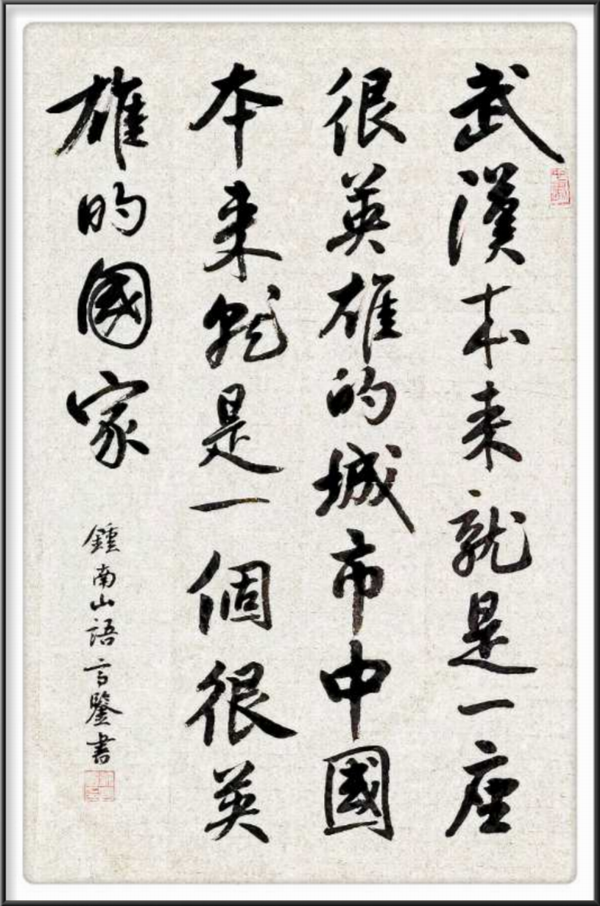 武漢本来就是一座
很英雄的城市中國
本来就是一個很英
雄的國家
鍾南山語高鑒書